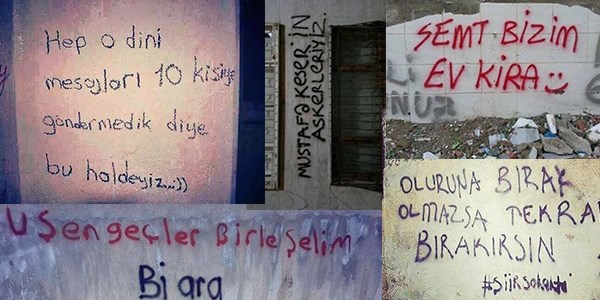 Hep o dini
mesajları 10 kişiye
göndermedik diye
bu haldeyiz...:))
MUSTAFA KESER'İN
ASKERLERİYİZ.
SEMT BİZİM
EV KİRA
Lİ
NUR
OLURUNA BIRAK
OLMAZSA TEKRA
BIRAKIRSIN
#şiirsokakta
Uşengeçler Birleşelim
Bi ara